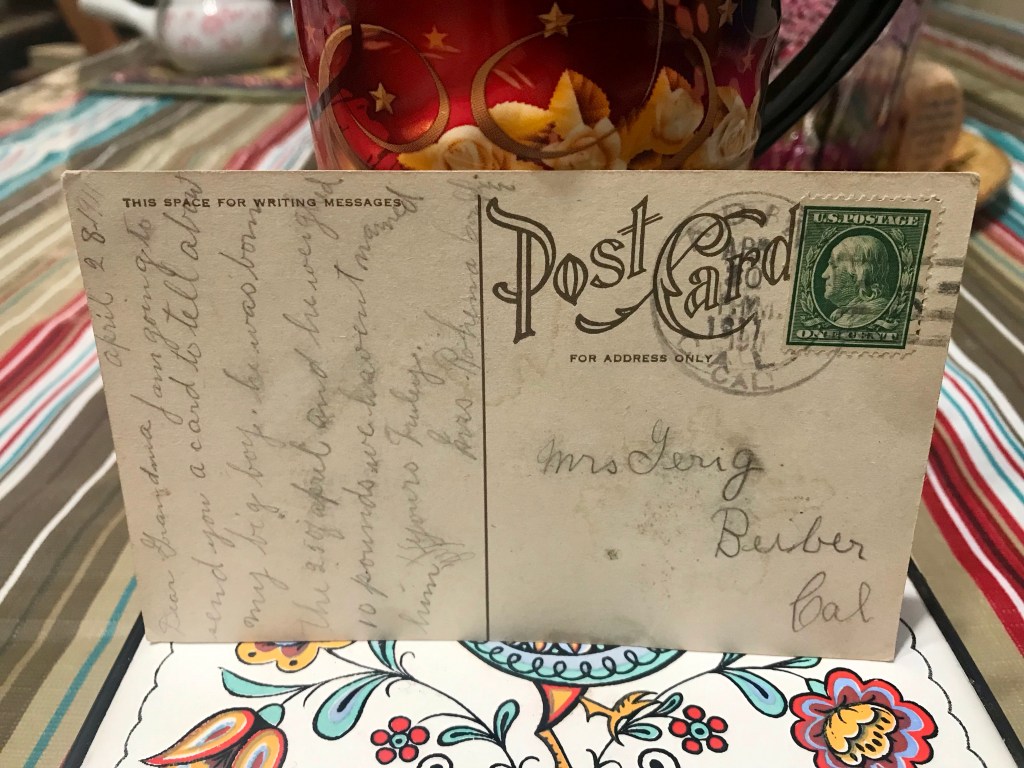 THIS SPACE FOR WRITING MESSAGES
april 28 1911
Dear Grandma I am going to
send you a card to tell about
my big boy. he was born
the 25 of april and he weighed
10 pounds we havent named
him yours Truly.
Mrs.
Post Card
FOR ADDRESS ONLY
APR
1911
CAL.
U.S. POSTAGE
ONE CENT
Mrs Gerig
Beiber
Cal